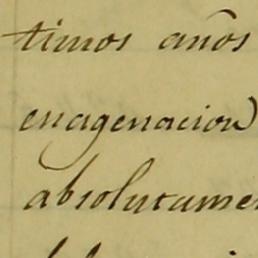 timos años
enagenacion
absolutame